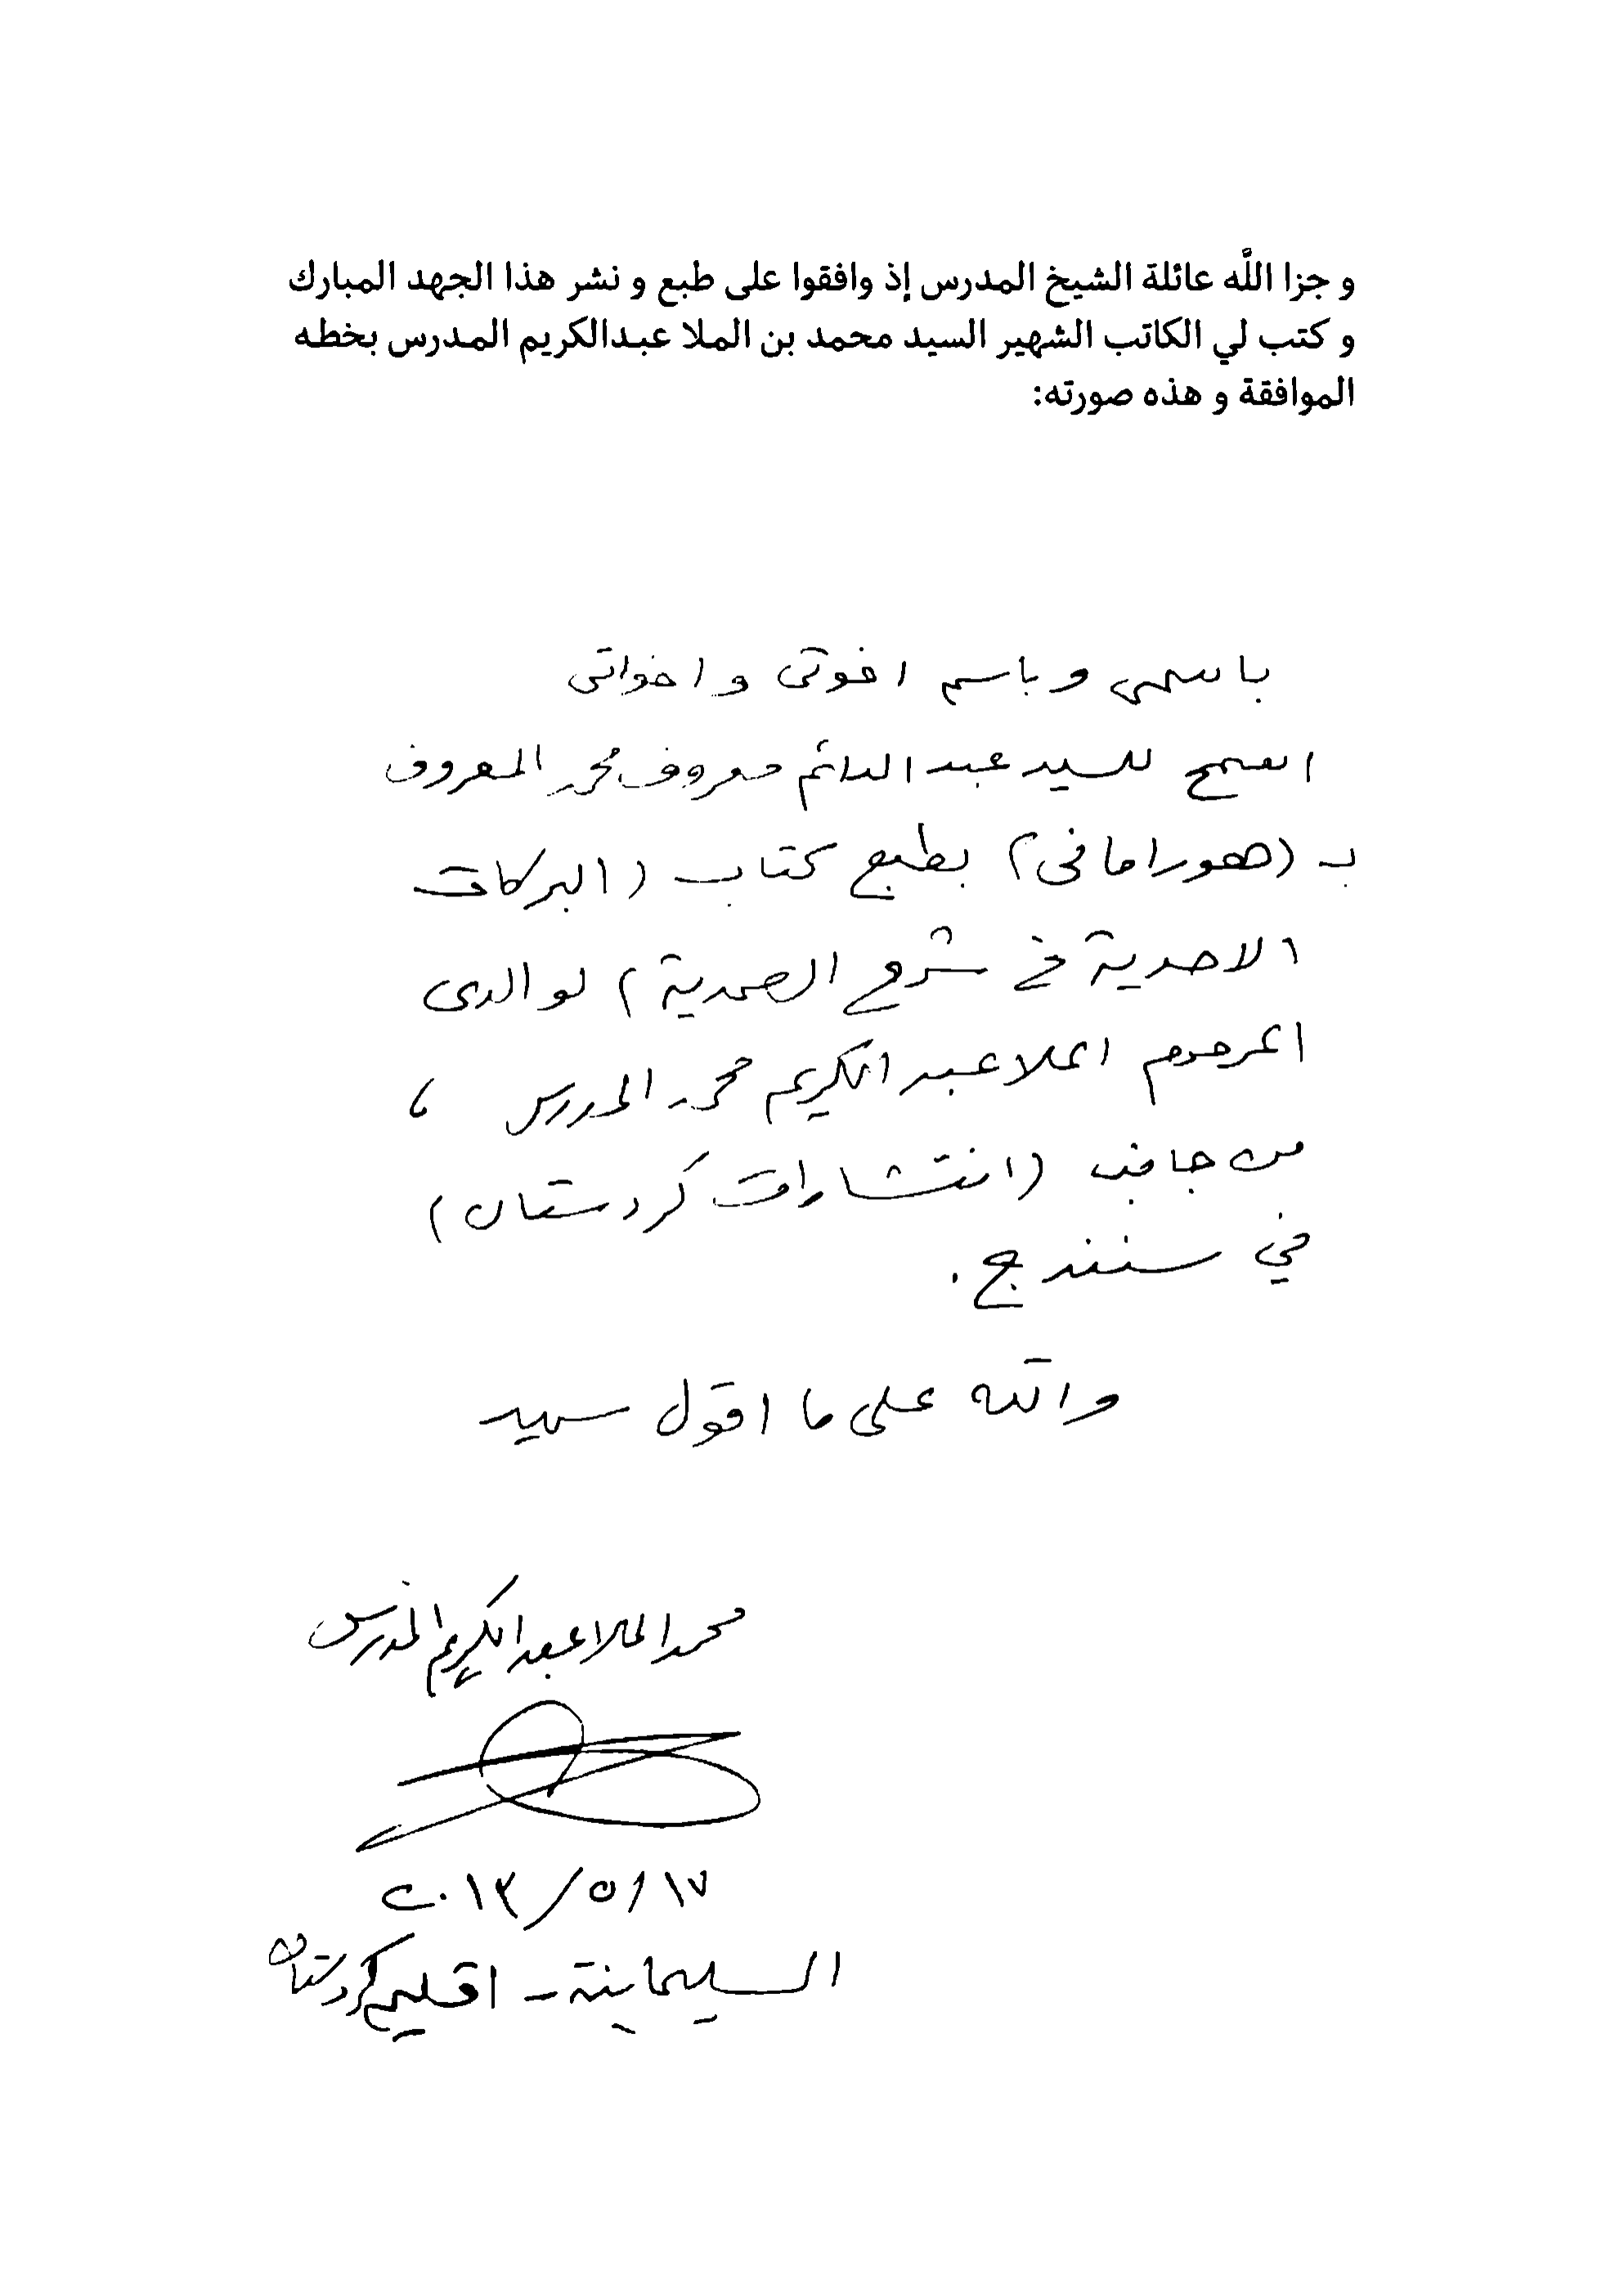 و جزا اللَّه عائلة الشيخ المدرس إذ وافقوا على طبع و نشر هذا الجهد المبارك
و كتب لي الكاتب الشهير السيد محمد بن الملا عبدالكريم المدرس بخطه
الموافقة و هذه صورته:
باسمى وباسم اخوتى واخواتى
اسمح للسيد عبد الدائم معروف محمد المعروف
بـ (هورامانى) بطبع كتاب (البركات
الاحدية في شرح الصمدية) لوالدى
المرحوم الملا عبد الكريم محمد المدرس ،
من جانب (انتشارات كردستان)
في سنندج .
والله على ما اقول شهيد
محمد الملا عبد الكريم المدرس
١٧/٥/٢٠١٣
السليمانية - اقليم كردستان